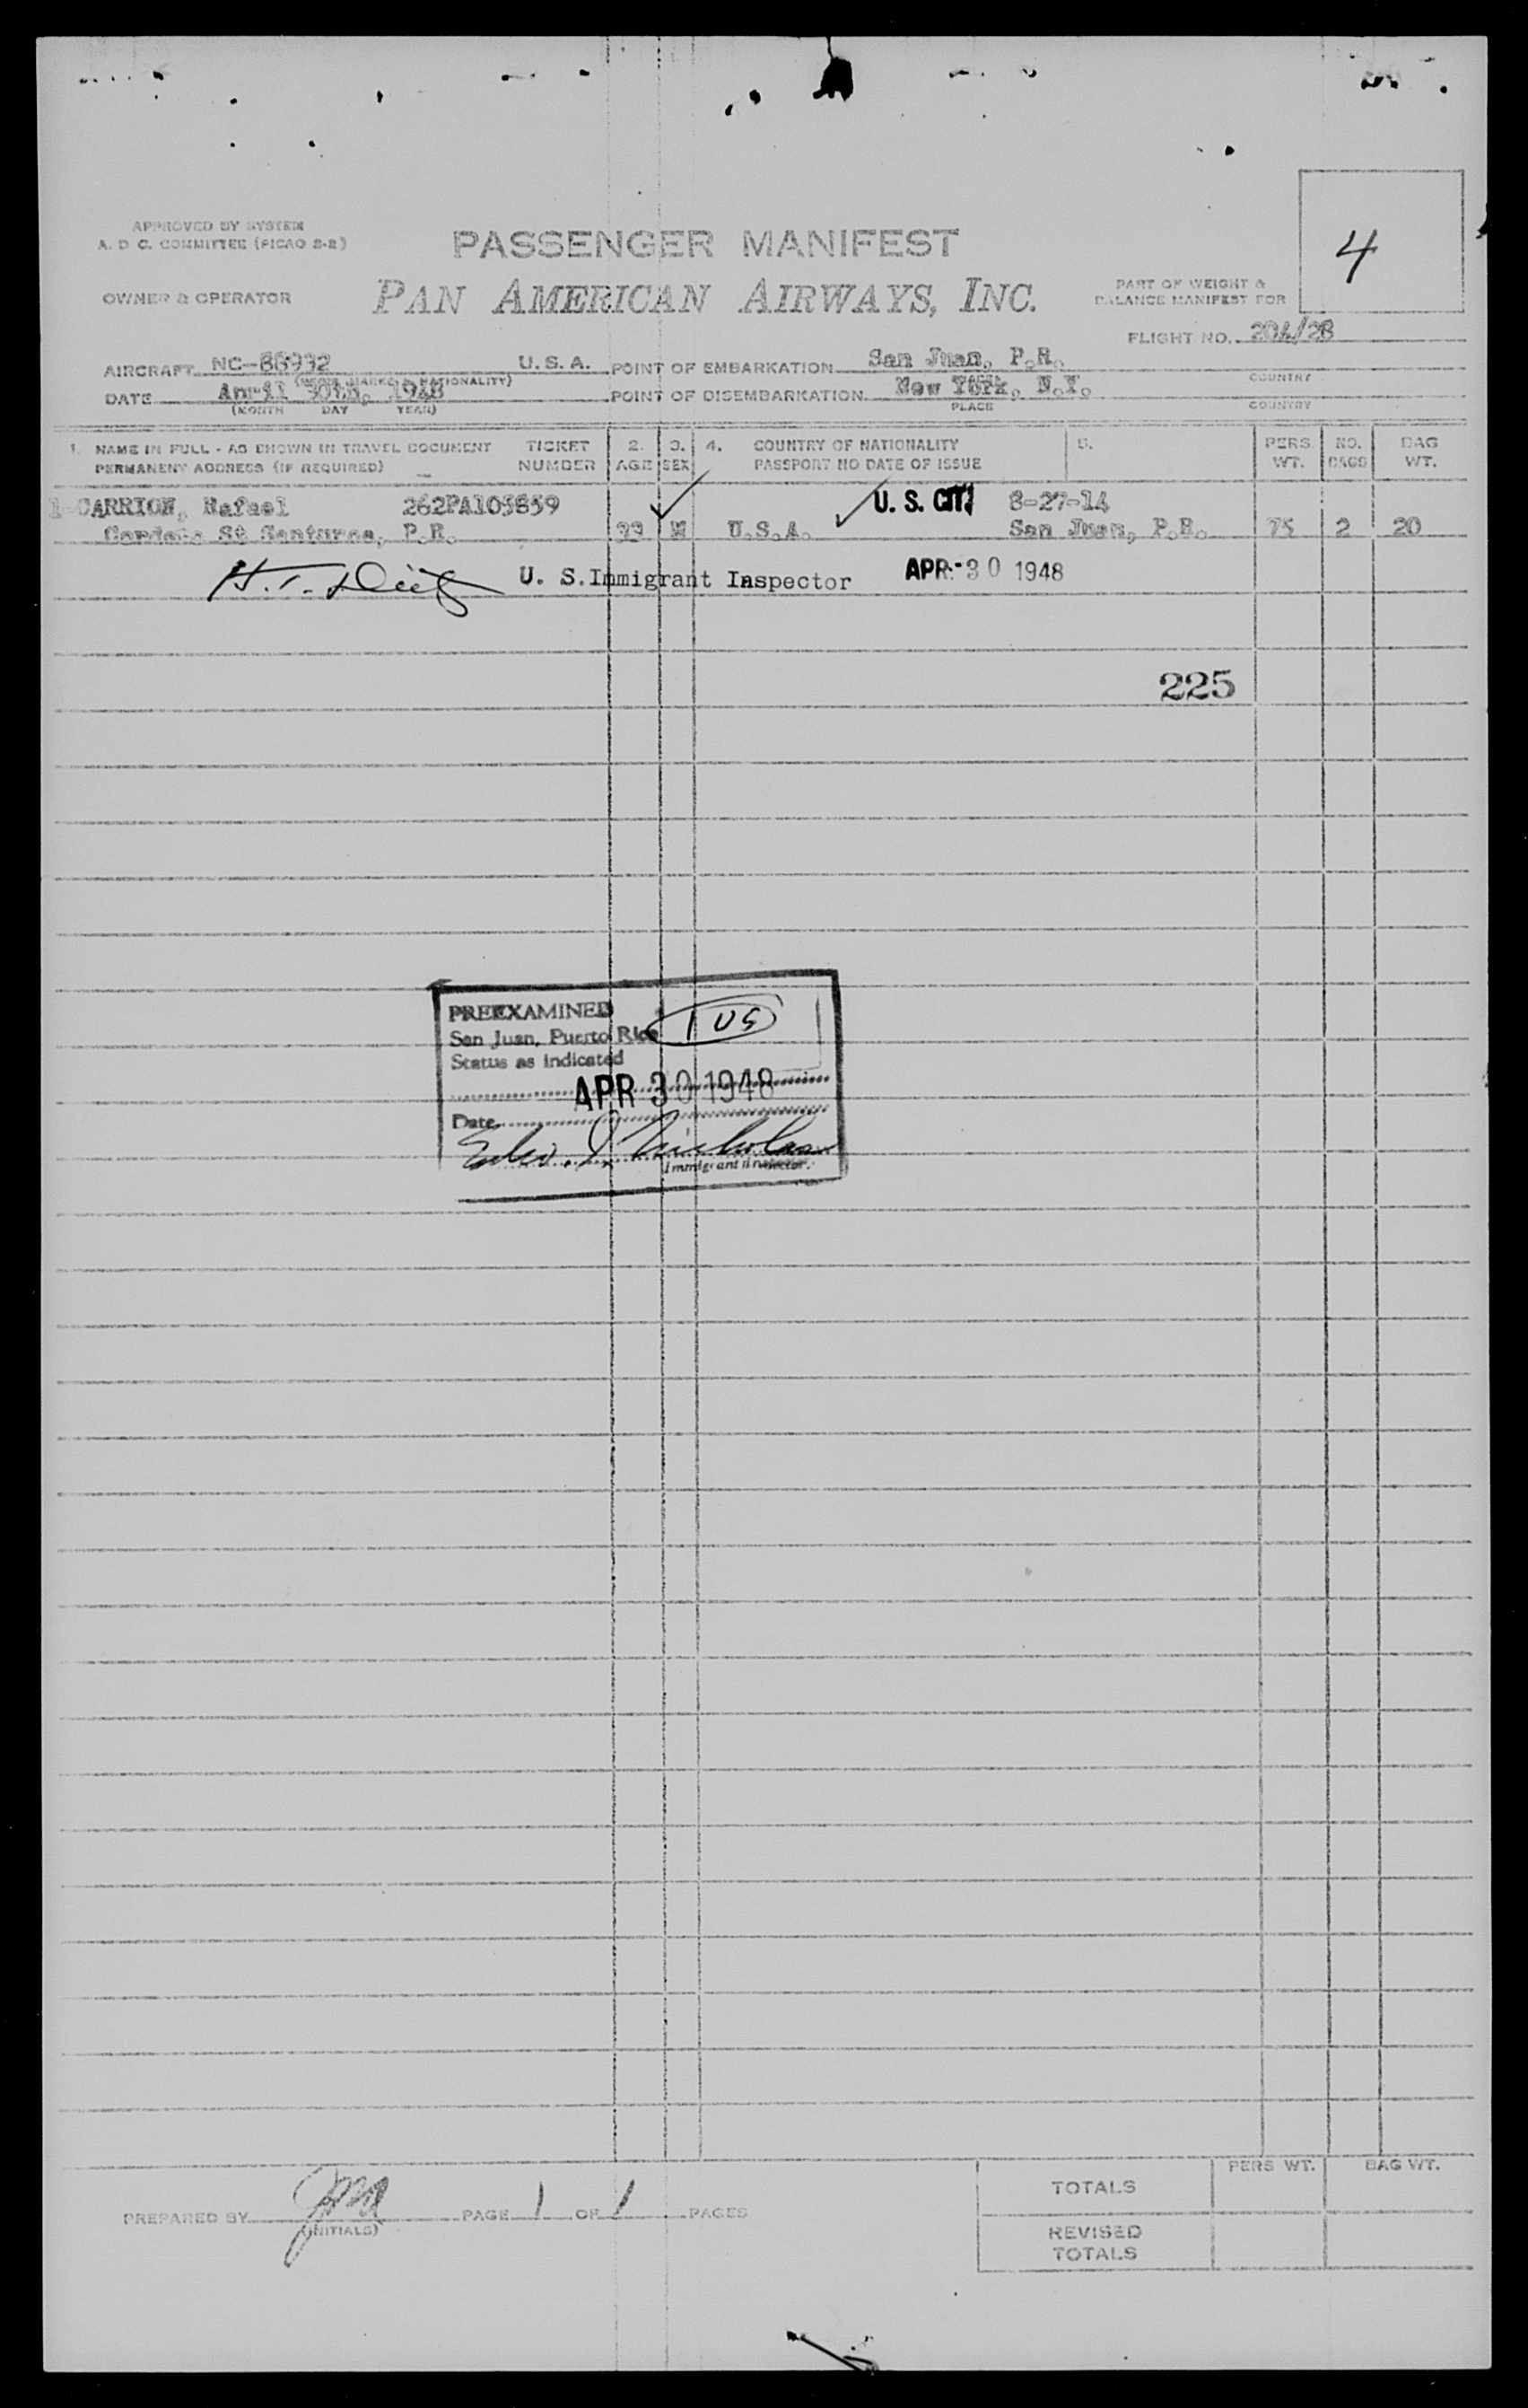 APPROVED BY SYSTEM
A. D C. COMMITTEE (PICAO 2-2)
PASSENGER MANIFEST
4
OWNER & OPERATOR
PAN AMERICAN AIRWAYS, INC.
PART OF WEIGHT &
BALANCE MANIFEST FOR
FLIGHT NO. 204/28
AIRCRAFT NC-88932 U.S.A. POINT OF EMBARKATION San Juan, P.R.
(REGIS. MARKS & NATIONALITY) PLACE COUNTRY
DATE April 30th, 1948 POINT OF DISEMBARKATION New York, N.Y.
(MONTH DAY YEAR) PLACE COUNTRY
1. NAME IN FULL - AS SHOWN IN TRAVEL DOCUMENT TICKET 2. 3. 4. COUNTRY OF NATIONALITY 5. PERS. NO. BAG
PERMANENT ADDRESS (IF REQUIRED) NUMBER AGE SEX PASSPORT NO DATE OF ISSUE WT. BAGS WT.
1-CARRION, Rafael 262PA105859 U. S. CIT. 8-27-14
St Santurce, P.R. 33 M U.S.A. San Juan, P.R. 75 2 20
U. S. Immigrant Inspector APR-30 1948
225
PREEXAMINED
San Juan, Puerto Rico 1 US
Status as indicated
APR 30 1948
Date
Nicholas
Immigrant Inspector.
PREPARED BY PAGE 1 OF 1 PAGES
(INITIALS)
PERS WT. BAG WT.
TOTALS
REVISED
TOTALS